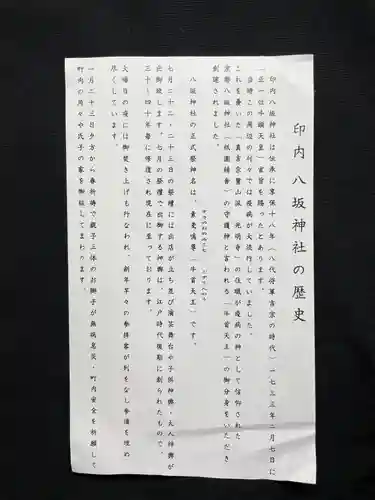 印内 八坂神社の歴史
印内八坂神社は伝承に享保十八年（八代将軍吉宗の時代）一七三三年二月七日に
「正一位牛頭天皇」宣旨を賜ったとあります。
当時この周辺の村々では疫病が大流行していました。
これを憂いた「真言宗豊山派 光明寺」の住職が疫病の神として信仰された
京都八坂神社（祇園精舎）の守護神と言われる「牛頭天王」の御分身をいただき
創建されました。
八坂神社の正式祭神名は、素戔嗚尊（牛首天王）です。
七月二十二・二十三日の祭禮には出店が立ち並び演芸舞台や子供神輿・大人神輿が
出御致します。七月の祭禮で出御する神輿は、江戸時代後期に創られたもので、
三十～四十年毎に修復され現在に至っております。
大晦日の夜には御焚き上げも行なわれ、新年早々の参拝客が列をなし参道を埋め
尽くしています。
一月二十三日夕方から春祈祷で親子三体のお獅子が無病息災・町内安全を祈願して
町内の角々や氏子の家を御祓してまわります。